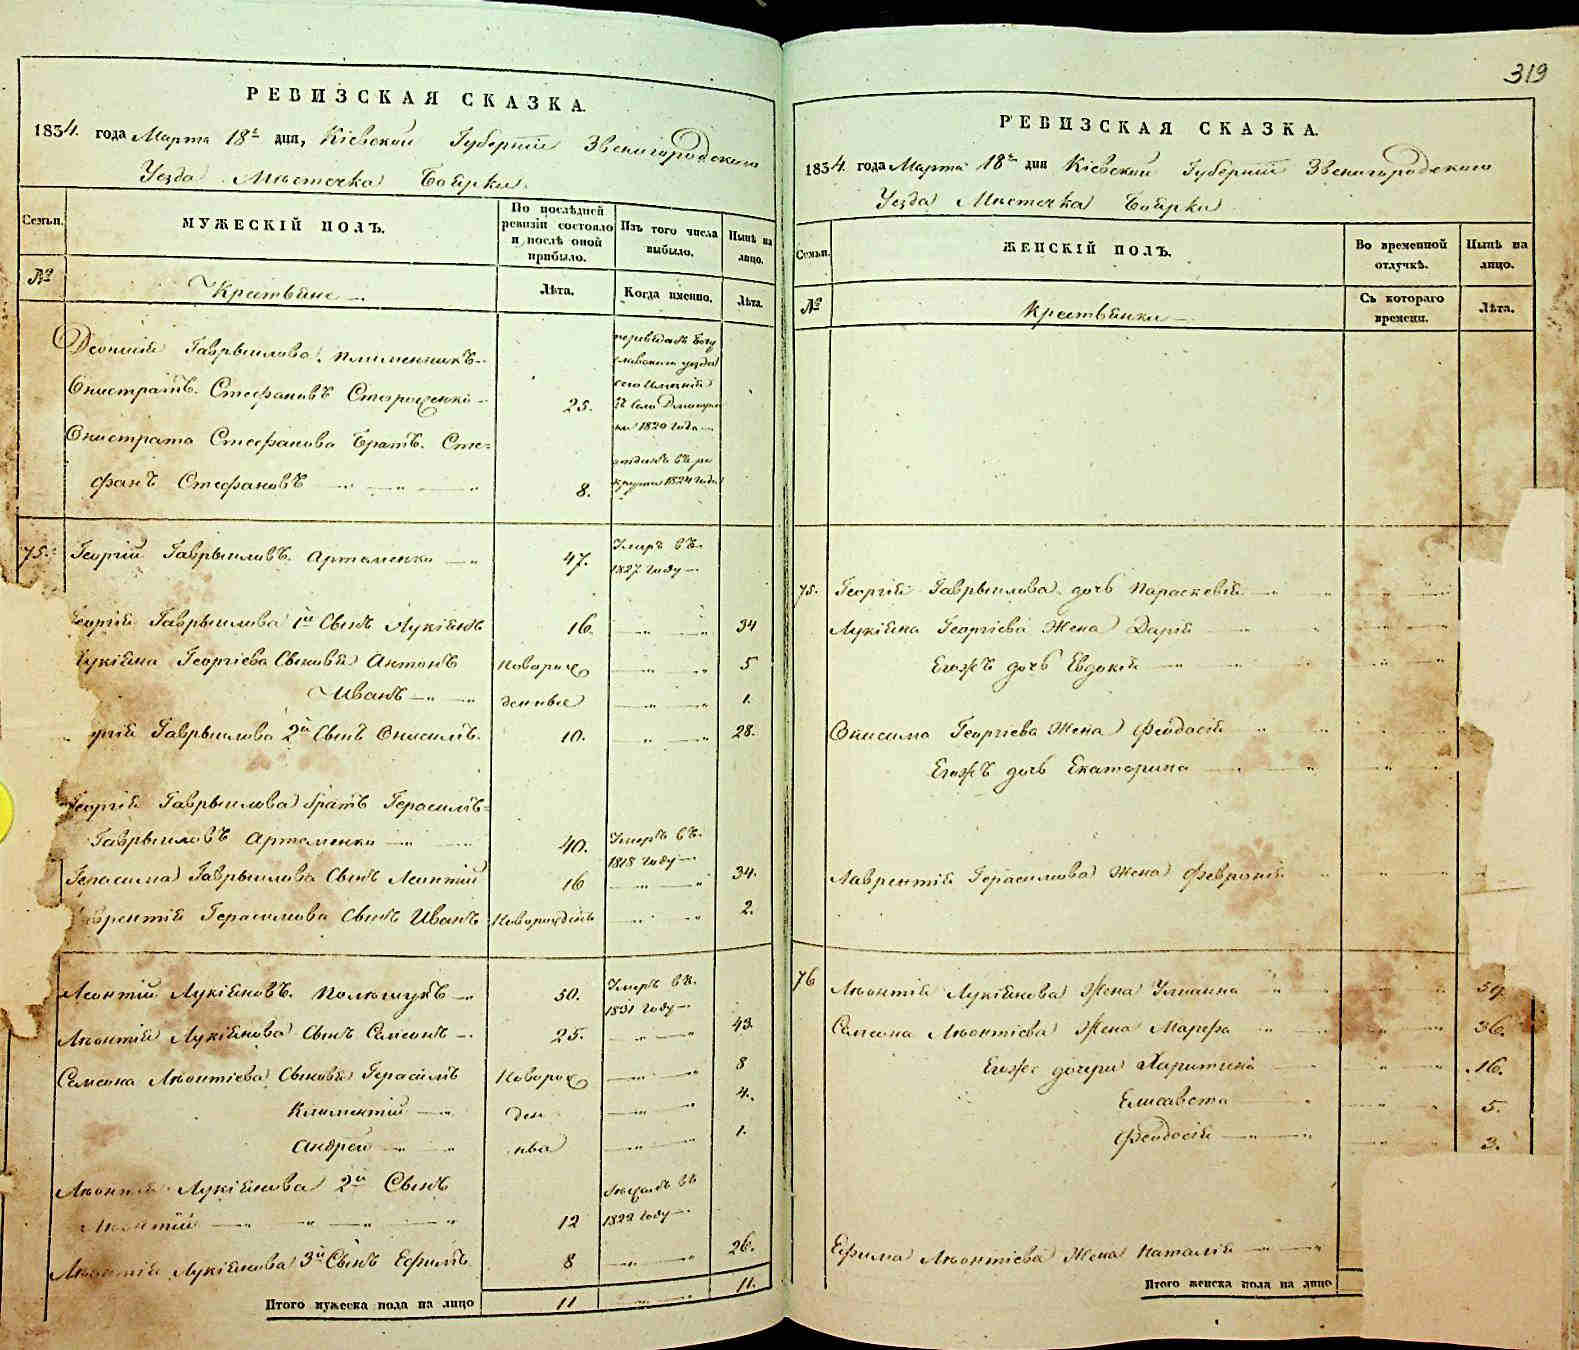 319
РЕВИЗСКАЯ СКАЗКА.
1834. года Марта 18го дня, Кіевской Губерніи Звенигородского
Уезда Мѣстечка Боярки.
Семьи.
МУЖЕСКІЙ ПОЛЪ.
По послѣдней
ревизіи состояло
и послѣ оной
прибыло.
Изъ того числа
выбыло.
Нынѣ на
лицо.
№
Крестьяне
Лѣта.
Когда именно.
Лѣта.
Гаврыилова племенникъ
Онистратъ Стефановъ 25.
1820 года
Онистрата Стефанова Братъ Сте-
фанъ Стефановъ 8.
отданъ въ ре
круты 1824 года
75. Георгій Гаврыиловъ Артеменко 47. Умеръ въ
1827 году
Георгія Гаврыилова 1й Сынъ Лукіянъ 16. 34
Лукіяна Георгіева Сыновья Антонъ новорож 5
Иванъ денные 1.
Гаврыилова 2й Сынъ Онисимъ. 10. 28.
Георгія Гаврыилова братъ Герасимъ
Гаврыиловъ Артеменко 40. Умеръ въ
1818 году
Герасима Гаврыилова Сынъ Леонтій 16 34.
Герасимова Сынъ Иванъ новорожденъ 2.
Леонтій Лукіяновъ 50. Умеръ въ
1831 году
Леонтія Лукіянова Сынъ Самсонъ 25. 43.
Самсона Леонтіева Сыновья Герасимъ новорож 8
Климентій ден 4.
Андрей ные 1.
Леонтія Лукіянова 2й Сынъ
Леонтій 12 въ
1829 году
Леонтія Лукіянова 3й Сынъ Ефимъ 8 26.
Итого мужеска пола на лицо 11 11.
РЕВИЗСКАЯ СКАЗКА.
1834. года Марта 18го дня Кіевской Губерніи Звенигородского
Уезда Мѣстечка Боярки
Семьи.
ЖЕНСКІЙ ПОЛЪ.
Во временной
отлучкѣ.
Нынѣ на
лицо.
№
Крестьянки
Съ котораго
времени.
Лѣта.
75. Георгія Гаврыилова дочь Параскевія
Лукіяна Георгіева Жена Дарія
Егожъ дочь Евдокія
Онисима Георгіева Жена Феодосія
Егожъ дочь Екатерина
Лаврентія Герасимова Жена Февронія
76 Леонтія Лукіянова Жена Уліанна 54.
Самсона Леонтіева Жена Марфа 36.
Егоже дочери Харитина 16.
Елисавета 5.
Феодосія 3.
Ефима Леонтіева Жена Наталія
Итого женска пола на лицо